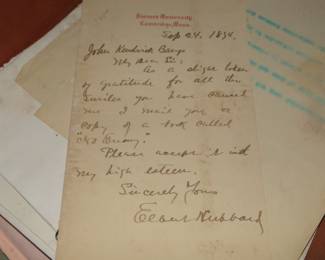 Harvard University
Cambridge, Mass.
Sep 24, 1894.
John Kendrick Bangs
My dear Sir:
As a slight token
of gratitude for all the
smiles you have caused
me I mail you a
copy of a book called
Please accept it with
my high esteem.
Sincerely Yours
Elbert Hubbard